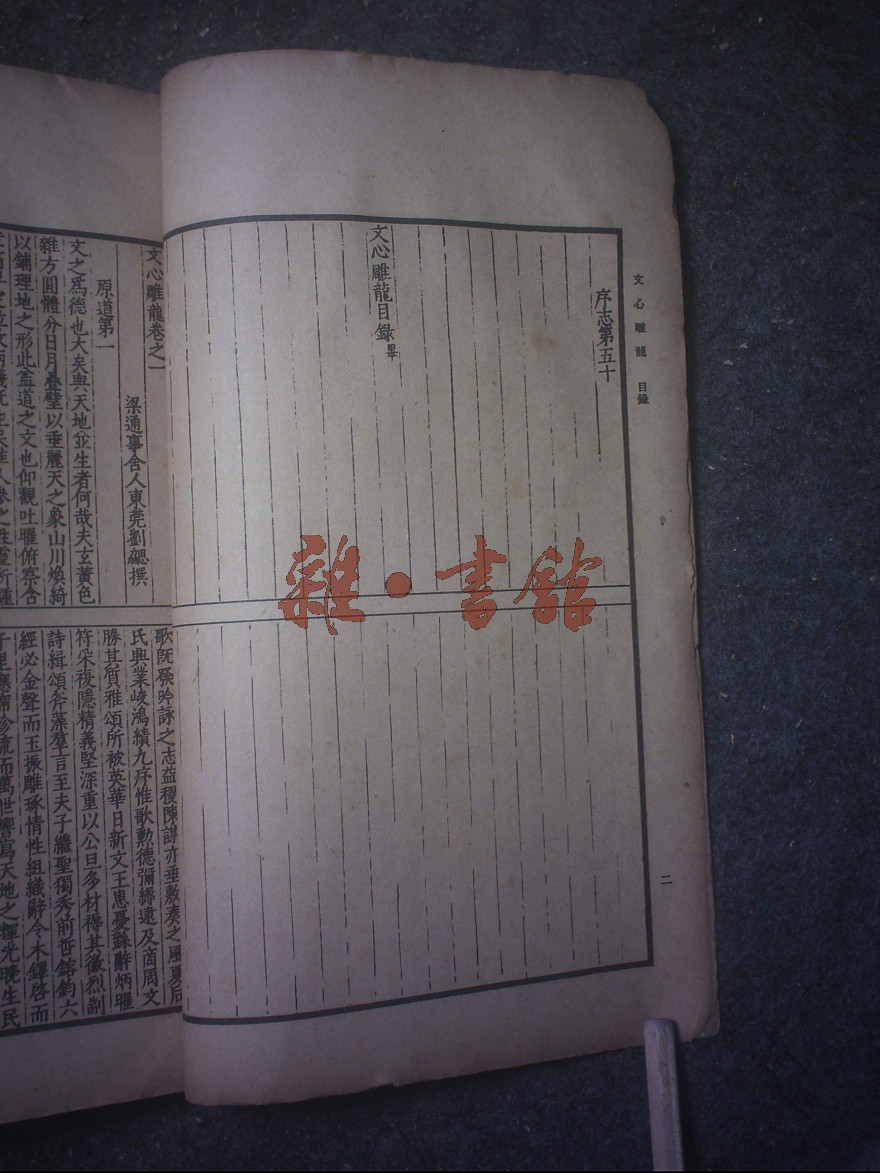 文心雕龍 目錄
二
序志第五十
文心雕龍目錄畢
雜・書館
文心雕龍卷之一
梁通事舍人東莞劉勰撰
原道第一
文之爲德也大矣與天地並生者何哉夫玄黃色
雜方圓體分日月疊璧以垂麗天之象山川煥綺
以鋪理地之形此蓋道之文也仰觀吐曜俯察含
歌旣發吟詠之志益稷陳謨亦垂敷奏之風夏后
氏興業峻鴻績九序惟歌勳德彌縟逮及商周文
勝其質雅頌所被英華日新文王患憂繇辭炳曜
符采複隱精義堅深重以公旦多材得其徽烈剬
詩緝頌斧藻羣言至夫子繼聖獨秀前哲鎔鈞六
經必金聲而玉振雕琢情性組織辭令木鐸啓而
千里應席珍流而萬世響寫天地之輝光曉生民